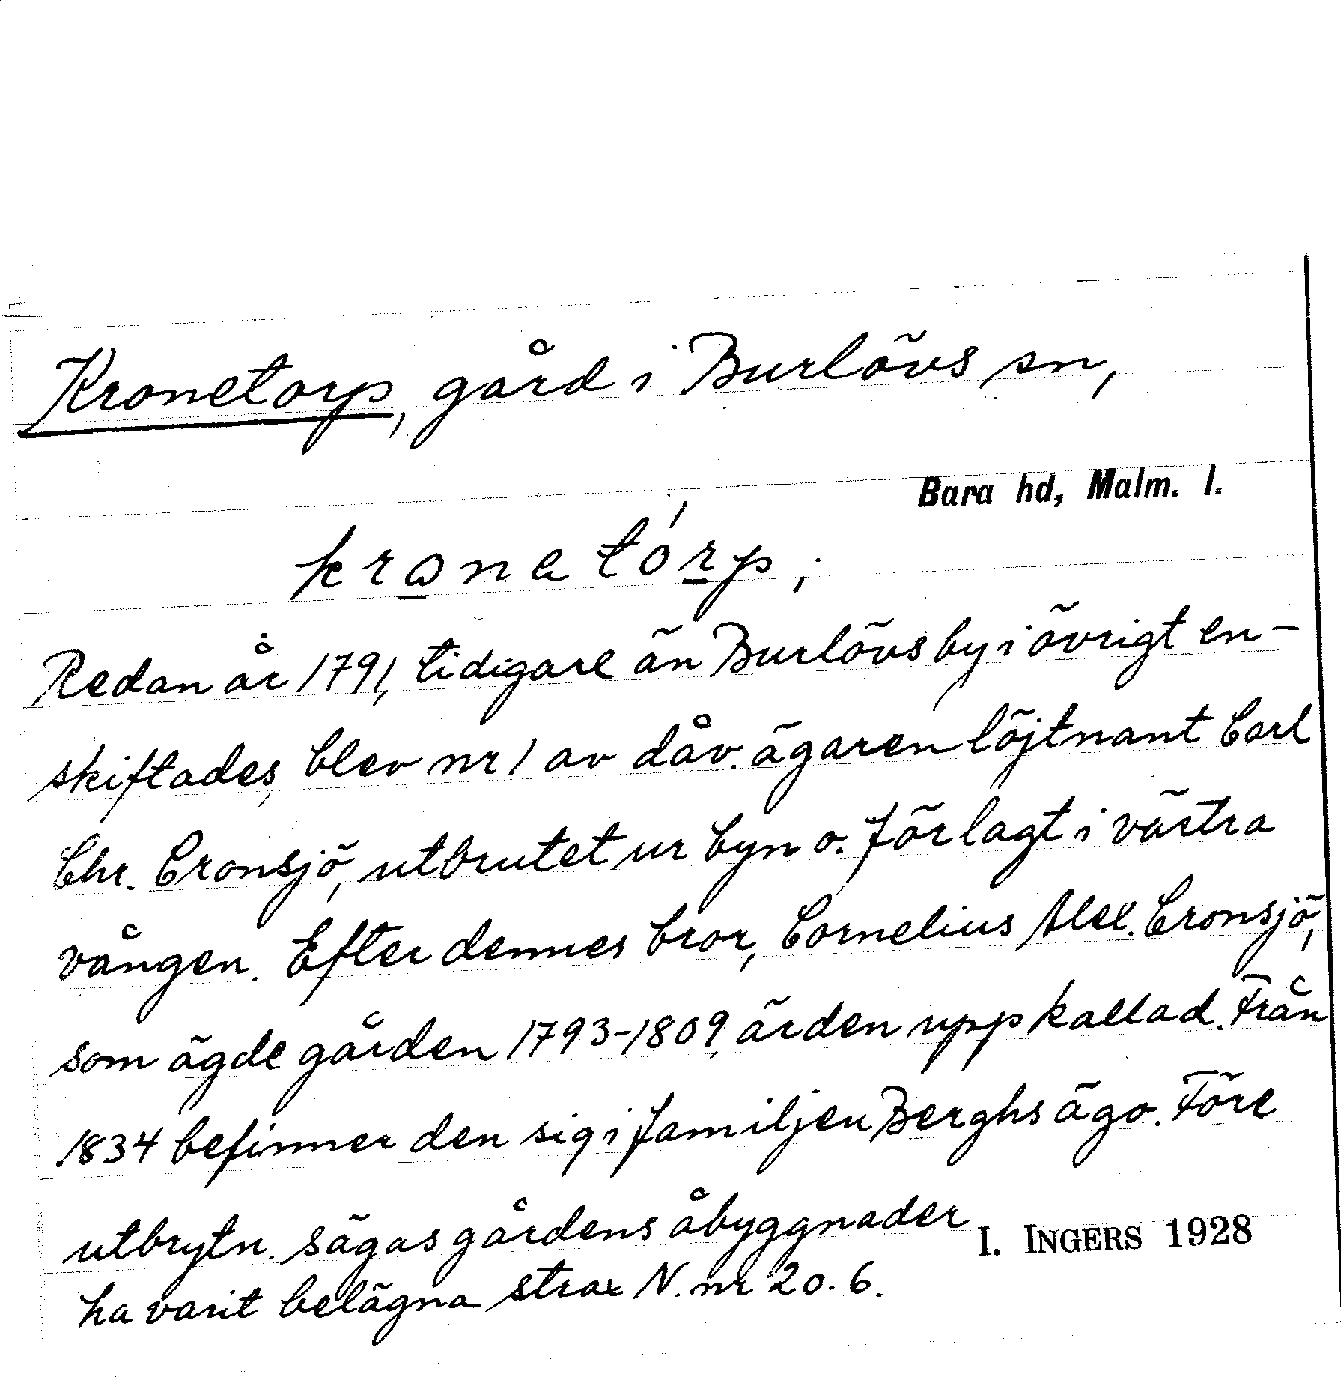 Kronetorp, gård i Burlövs sn,
Bara hd, Malm. l.
kronatórp;
Redan år 1791, tidigare än Burlövs by i övrigt en-
skiftades, blev nr 1 av dåv. ägaren löjtnant Carl
Chr. Cronsjö, utbrutet ur byn o. förlagt i västra
vången. Efter dennes bror, Cornelius Alex. Cronsjö,
som ägde gården 1793-1809, är den uppkallad. Från
1834 befinner den sig i familjen Berghs ägo. Före
utbrytn. sägas gårdens åbyggnader
I. INGERS 1928
ha varit belägna strax N. nr 20.6.